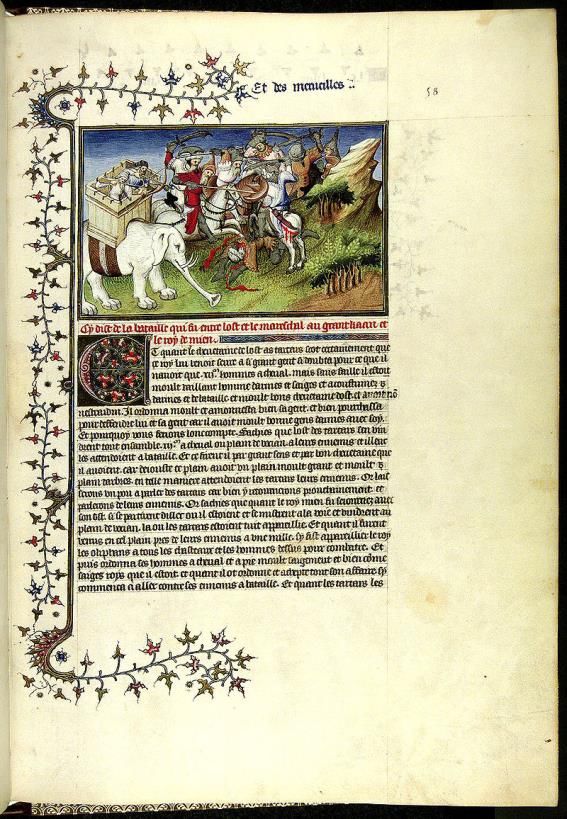 Et des merueilles
58
Cy dist de la bataille qui fu entre lost et le mareschal au grant kaan et
le roy de mien.
Et quant le cheuetaine de lost as tartars scot certainement que
ce roy lui venoit seure a si grant gent si doubta pour ce que il
nauoit que .xij.m hommes a cheual. mais sans faille il estoit
moult vaillant homme darmes et saiges et acoustumez
darmes et de bataille et moult bons cheuetaine dost. et auant
nestoudin. Il ordonna moult et amonnesta bien sa gent. et bien pourchassa
pour deffendre lui et sa gent car il auoit moult bonne gens darmes auec soy.
Et pourquoy vous feroie lonc compte. Saches que lost des tartars sen vin
drent tout ensemble .xij.m a cheual ou plain de vocian. a leurs ennemis et illeuc
les attendoient a bataille. Et ce firent il par grant sens et par bon cheuetaine que
il auoient. car deiouste ce plain auoit vn plain moult grant et moult
plain darbres. et en telle maniere attendoient les tartars leurs ennemis. Or lais
serons vn pou a parler des tartars car bien y retournerons prochainement. et
parlerons de leurs ennemis. Or saches que quant le roy de mien fu seiournez auec
son ost. si se partirent dillec ou il estoient et se mistrent a la voie et vindrent au
plain de vocian. la ou les tartars estoient tuit appareillie. Et quant il furent
venus en cel plain pres de leurs ennemis a vne mille. sy fist appareillier le roy
les oliphans a tous les chasteaux et les hommes dessus pour combatre. Et
puis ordonna ses hommes a cheual et a pie moult saigement et bien come
saiges roys que il estoit. et quant il ot ordonne et adrepce tout son affaire sy
commenca a aller contre ses ennemis a bataille. Et quant les tartars les